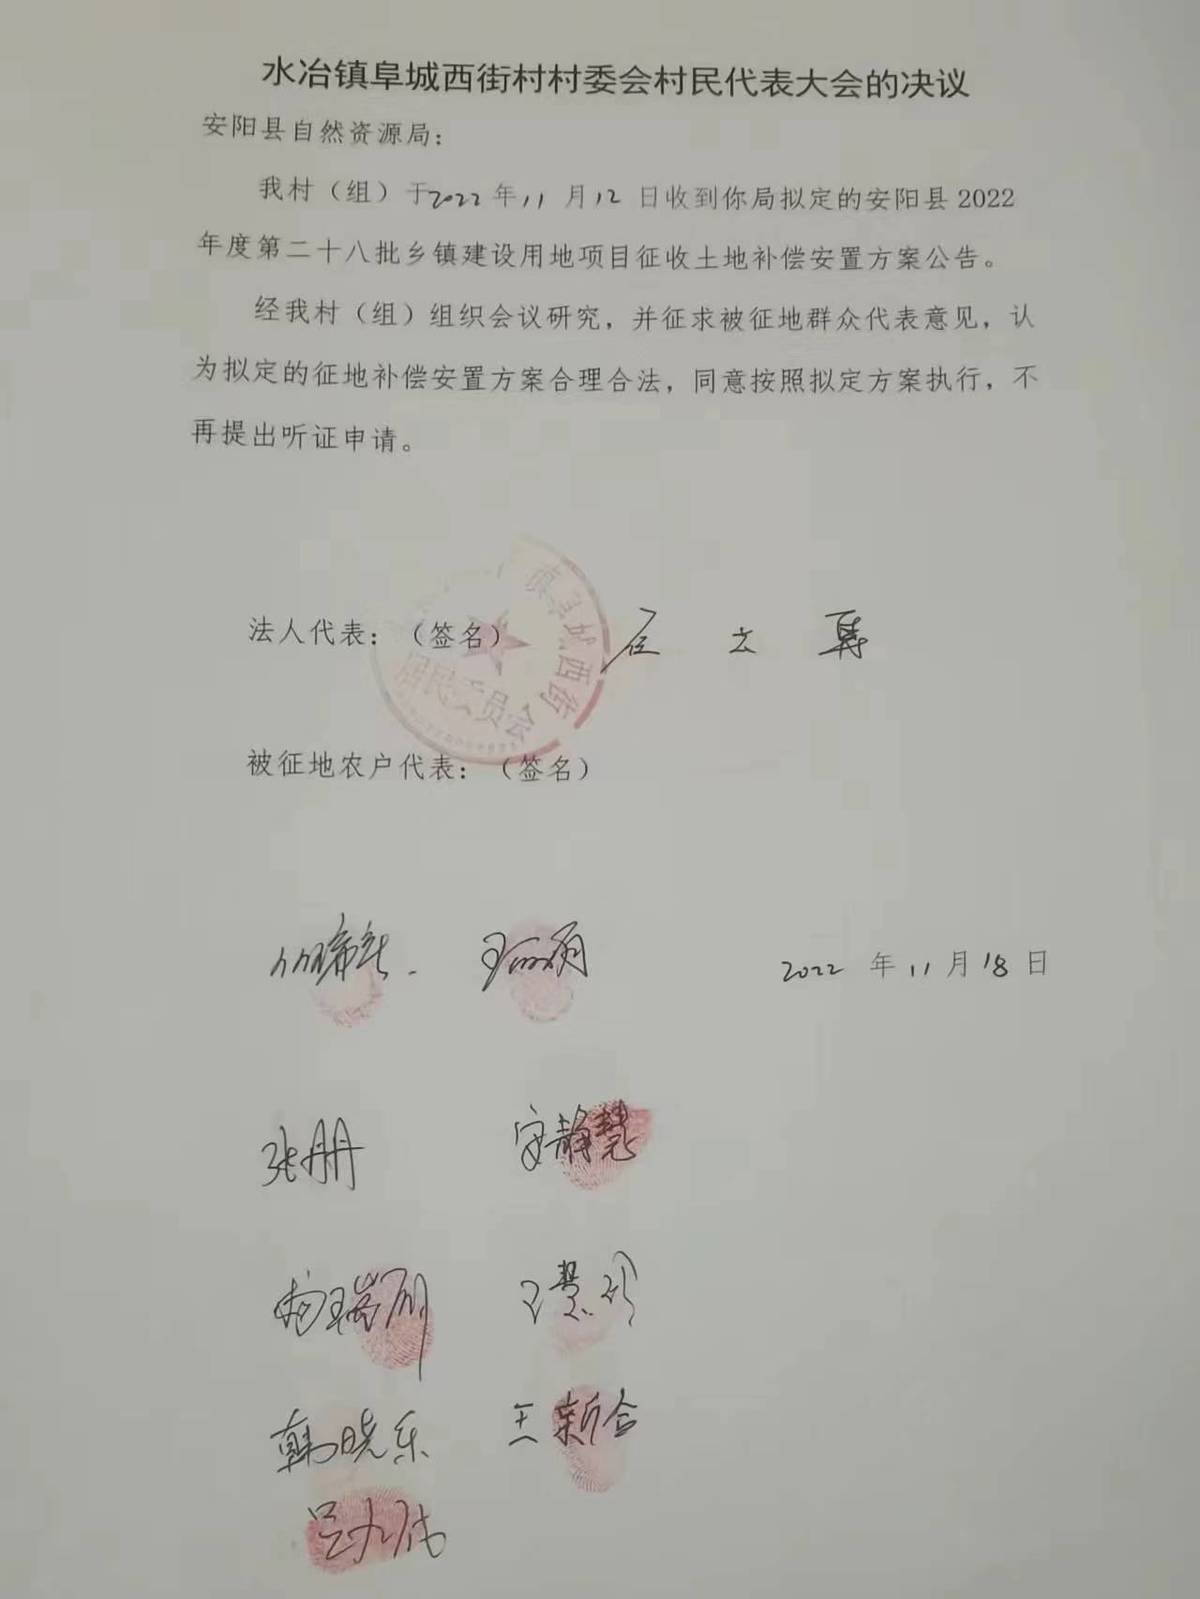 水冶镇阜城西街村村委会村民代表大会的决议
安阳县自然资源局：
我村（组）于2022年11月12日收到你局拟定的安阳县2022
年度第二十八批乡镇建设用地项目征收土地补偿安置方案公告。
经我村（组）组织会议研究，并征求被征地群众代表意见，认
为拟定的征地补偿安置方案合理合法，同意按照拟定方案执行，不
再提出听证申请。
镇阜城西街
居民委员会
法人代表：（签名）
被征地农户代表：（签名）
2022年11月18日
张朋 安静慧
韩晓东 王新合